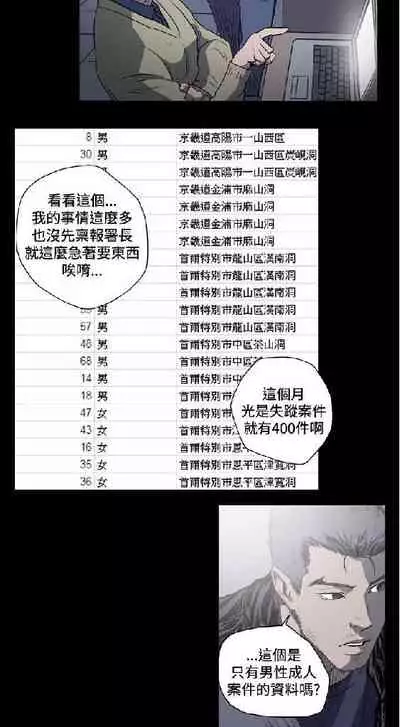 8 男 京畿道高陽市一山西區
30 男 京畿道高陽市一山西區炭峴洞
男 京畿道高陽市一山西區炭峴洞
京畿道金浦市麻山洞
京畿道金浦市麻山洞
京畿道金浦市麻山洞
京畿道金浦市麻山洞
首爾特別市龍山區漢南洞
首爾特別市龍山區漢南洞
首爾特別市龍山區漢南洞
男 首爾特別市龍山區漢南洞
67 男 首爾特別市龍山區漢南洞
46 男 首爾特別市中區茶山洞
68 男 首爾特別市中
14 男 首爾特別市中
18 男 首爾特別市
47 女 首爾特別市
43 女 首爾特別市
16 女 首爾特別市恩平
35 女 首爾特別市恩平區津寬洞
36 女 首爾特別市恩平區津寬洞
看看這個...
我的事情這麼多
也沒先禀報署長
就這麼急著要東西
唉唷...
這個月
光是失蹤案件
就有400件啊
...這個是
只有男性成人
案件的資料嗎?